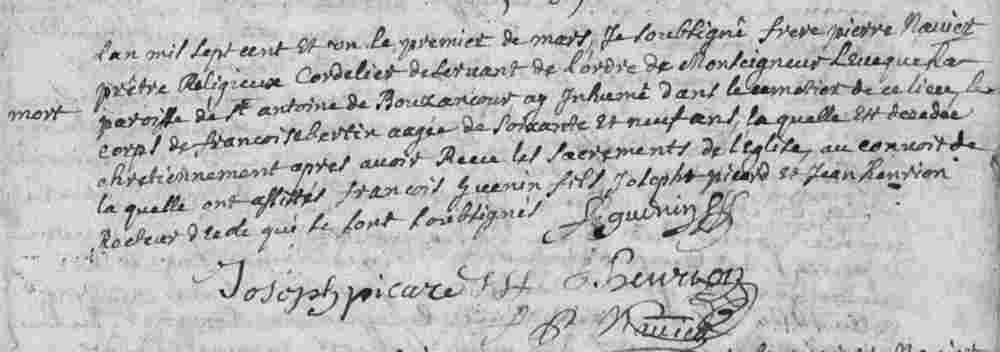 Lan mil sept cent et un le premier de mars, Je soubsigné frere pierre Naviet
prêtre Religieux Cordelier deservant de l'ordre de Monseigneur Leveque La
mort
paroisse de St antoine de Bouzancour ay Inhumé dans le cemetier de ce lieu, le
corps de francoise bertin aagée de soixante et neuf ans, la quelle est decedée
chretiennement apres avoir Receu les sacrements de leglise, au convoit de
la quelle ont assistés francois Guenin fils Joseph picard et Jean henrion
Recteur decole qui se sont soubsignés
F guenin
Joseph picare J henrion
P Naviet